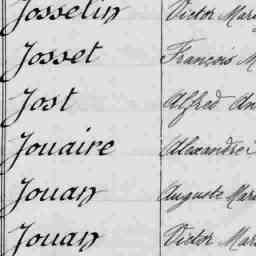 Josselin Victor Mar
Josset François M
Jost Alfred An
Jouaire Alexandre
Jouan Auguste Mar
Jouan Victor Mar